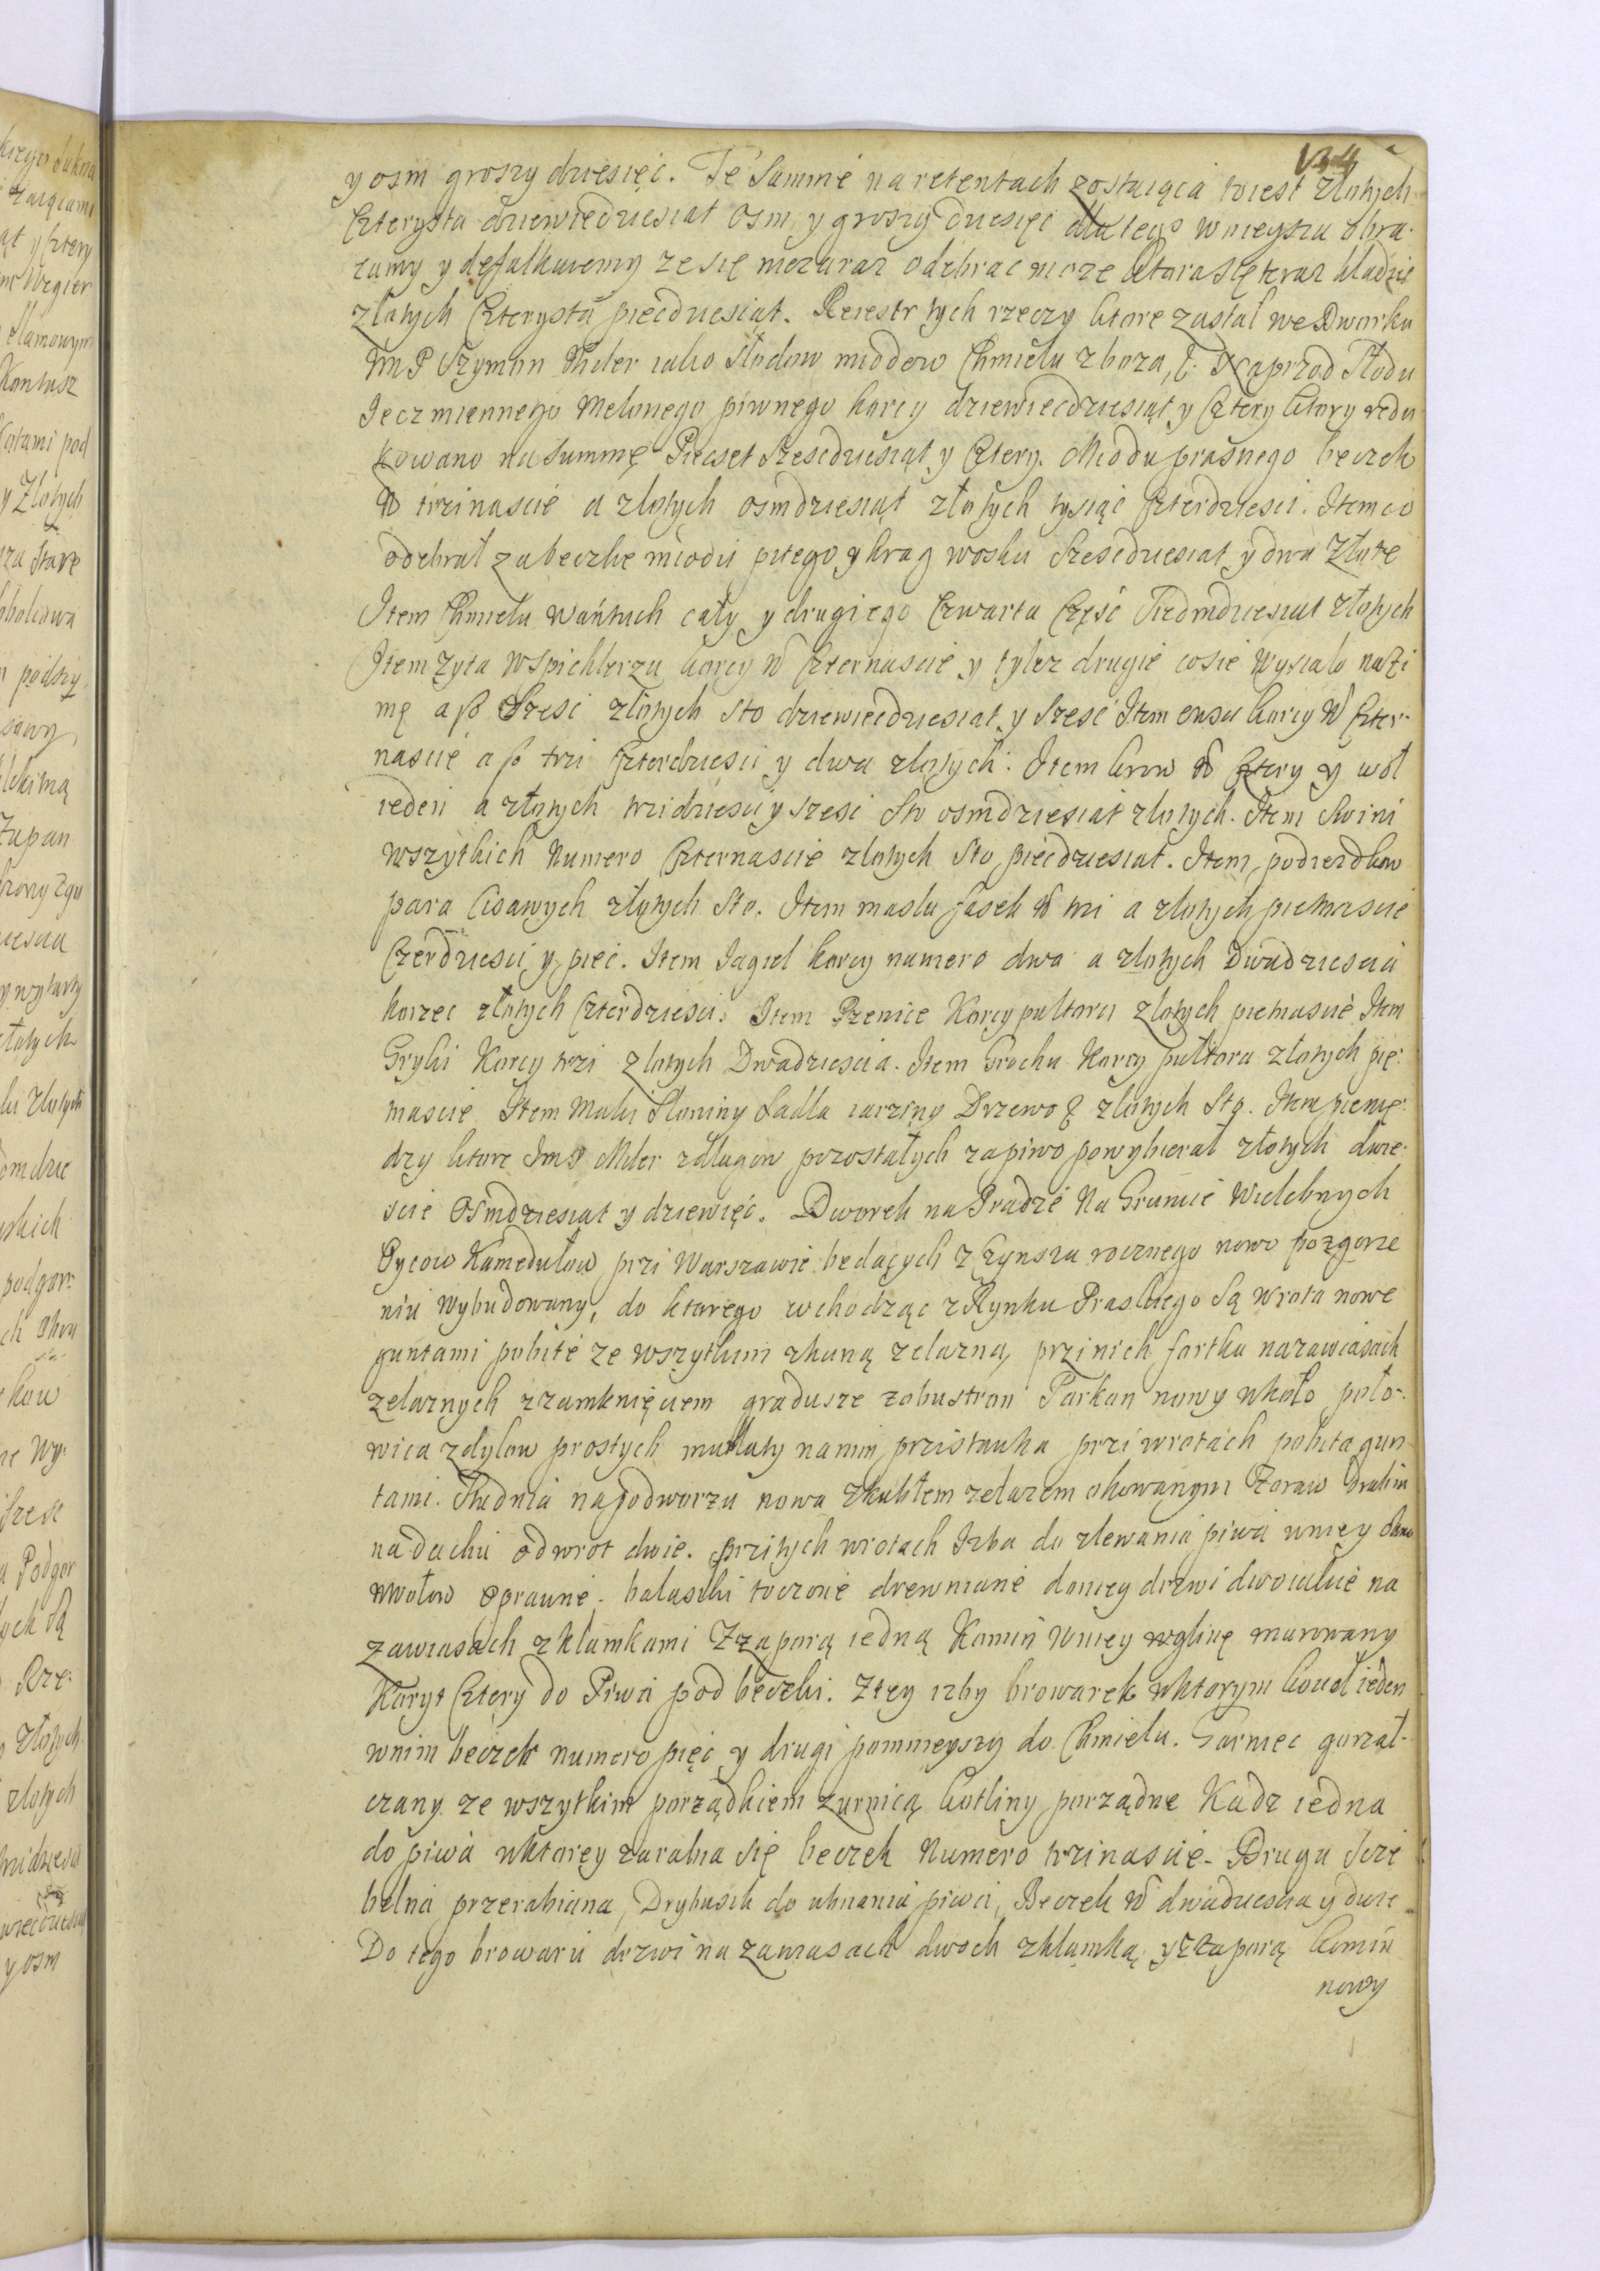 y osm groszy dziesięć. Te Summe na retentach zostaiąca to iest złotych
Czterysta dziewiedziesiat Osm y groszy dziesięc dla tego wnieyszu obra-
camy y defalkuiemy ze się niezaraz odebrac moze ktora się teraz kladzie
złotych Czterysta piecdziesiąt. Reiestr tych rzeczy ktore zastał we Dworku
Im P Szymon Miler iako Słodow miodow Chmielu zboza, Naprzod Słodu
Ieczmiennego Melonego piwnego korcy dziewiecdziesiąt y Cztery ktory redu
kowano na summę Piecset Szescdziesiąt y Cztery. Miodu prasnego beczek
No trzinascie a zlotych osmdziesiąt złotych tysiąc Czterdziesci. Item co
odebrał za beczke miodu pitego y krag wosku Szescdziesiat y dwa Złote
Item Chmielu wańtuch cały y drugiego Czwarta Część Siedmdziesiat złotych
Item zyta w Spichlerzu korcy No Czternascie y tylez drugie co sie wysiało na zi
mę a fl Szesc złotych sto dziewiecdziesiat y szesc Item owsa korcy No Czter-
nascie a fl trzi Czterdziesci y dwa zlotych. Item krow No Cztery y wół
ieden a złotych trzidziesci y szesc Sto osmdziesiat zlotych. Item Swini
wszytkich Numero Czternascie zlotych Sto piecdziesiat. Item podiezdkow
para Cisawych złotych Sto. Item masla fasek No trzi a zlotych pietnascie
Czterdziesci y piec. Item Iagiel korcy numero dwa a zlotych Dwadziescia
korzec złotych Czterdziesci. Item Pzenice Korcy pultora zlotych pietnascie Item
Gryki Korcy trzi zlotych Dwadziescia. Item Grochu Korcy pułtora złotych pię-
tnascie Item Słoniny Sadla iarziny Drzewo zlotych Sto. Item pienię-
dzy ktore Im P Miler z dlugow pozostałych za piwo powybierał złotych dwie-
scie Osmdziesiat y dziewięc. Dworek na Pradze Na Gruncie Wielebnych
Oycow Kamedułow przi Warszawie bedących z Czynszu rocznego nowo po zgorze
niu wybudowany, do ktorego wchodząc z Rynku Praskiego Są wrota nowe
guntami pobite ze wszytkim zkuną zelazną, przi nich fortka na zawiasach
zelaznych z zamknięciem gradusze z obustron Parkan nowy wkoło poło-
wica z dylow prostych na nim przistawka przi wrotach pobita gun
tami. Studnia na podworzu nowa z kubłem zelazem okowanym Zoraw Drabin
na dachu od wrot dwie. Przi tych wrotach Izba do zlewania piwa w niey okna
w ołow oprawne balaski toczone drewniane do niey drzwi dwoiakie na
zawiasach z klamkami Zzaporą iedną Komin w niey w glinę murowany
Koryt Cztery do Piwa pod beczki. Z tey izby browarek w ktorym kocioł ieden
w nim beczek numero pięc y drugi pomnieyszy do Chmielu. Garniec gorzał-
czany ze wszytkim porządkiem z urnicą kotliny porządne Kadz iedna
do piwa w ktorey zarabia się beczek Numero trzinascie. Druga
przerabiana, Drybusik do piwa, Beczek No dwadziescia y dwie
Do tego browaru drzwi na zawiasach dwoch z klamką y Zzaporą komin
nowy